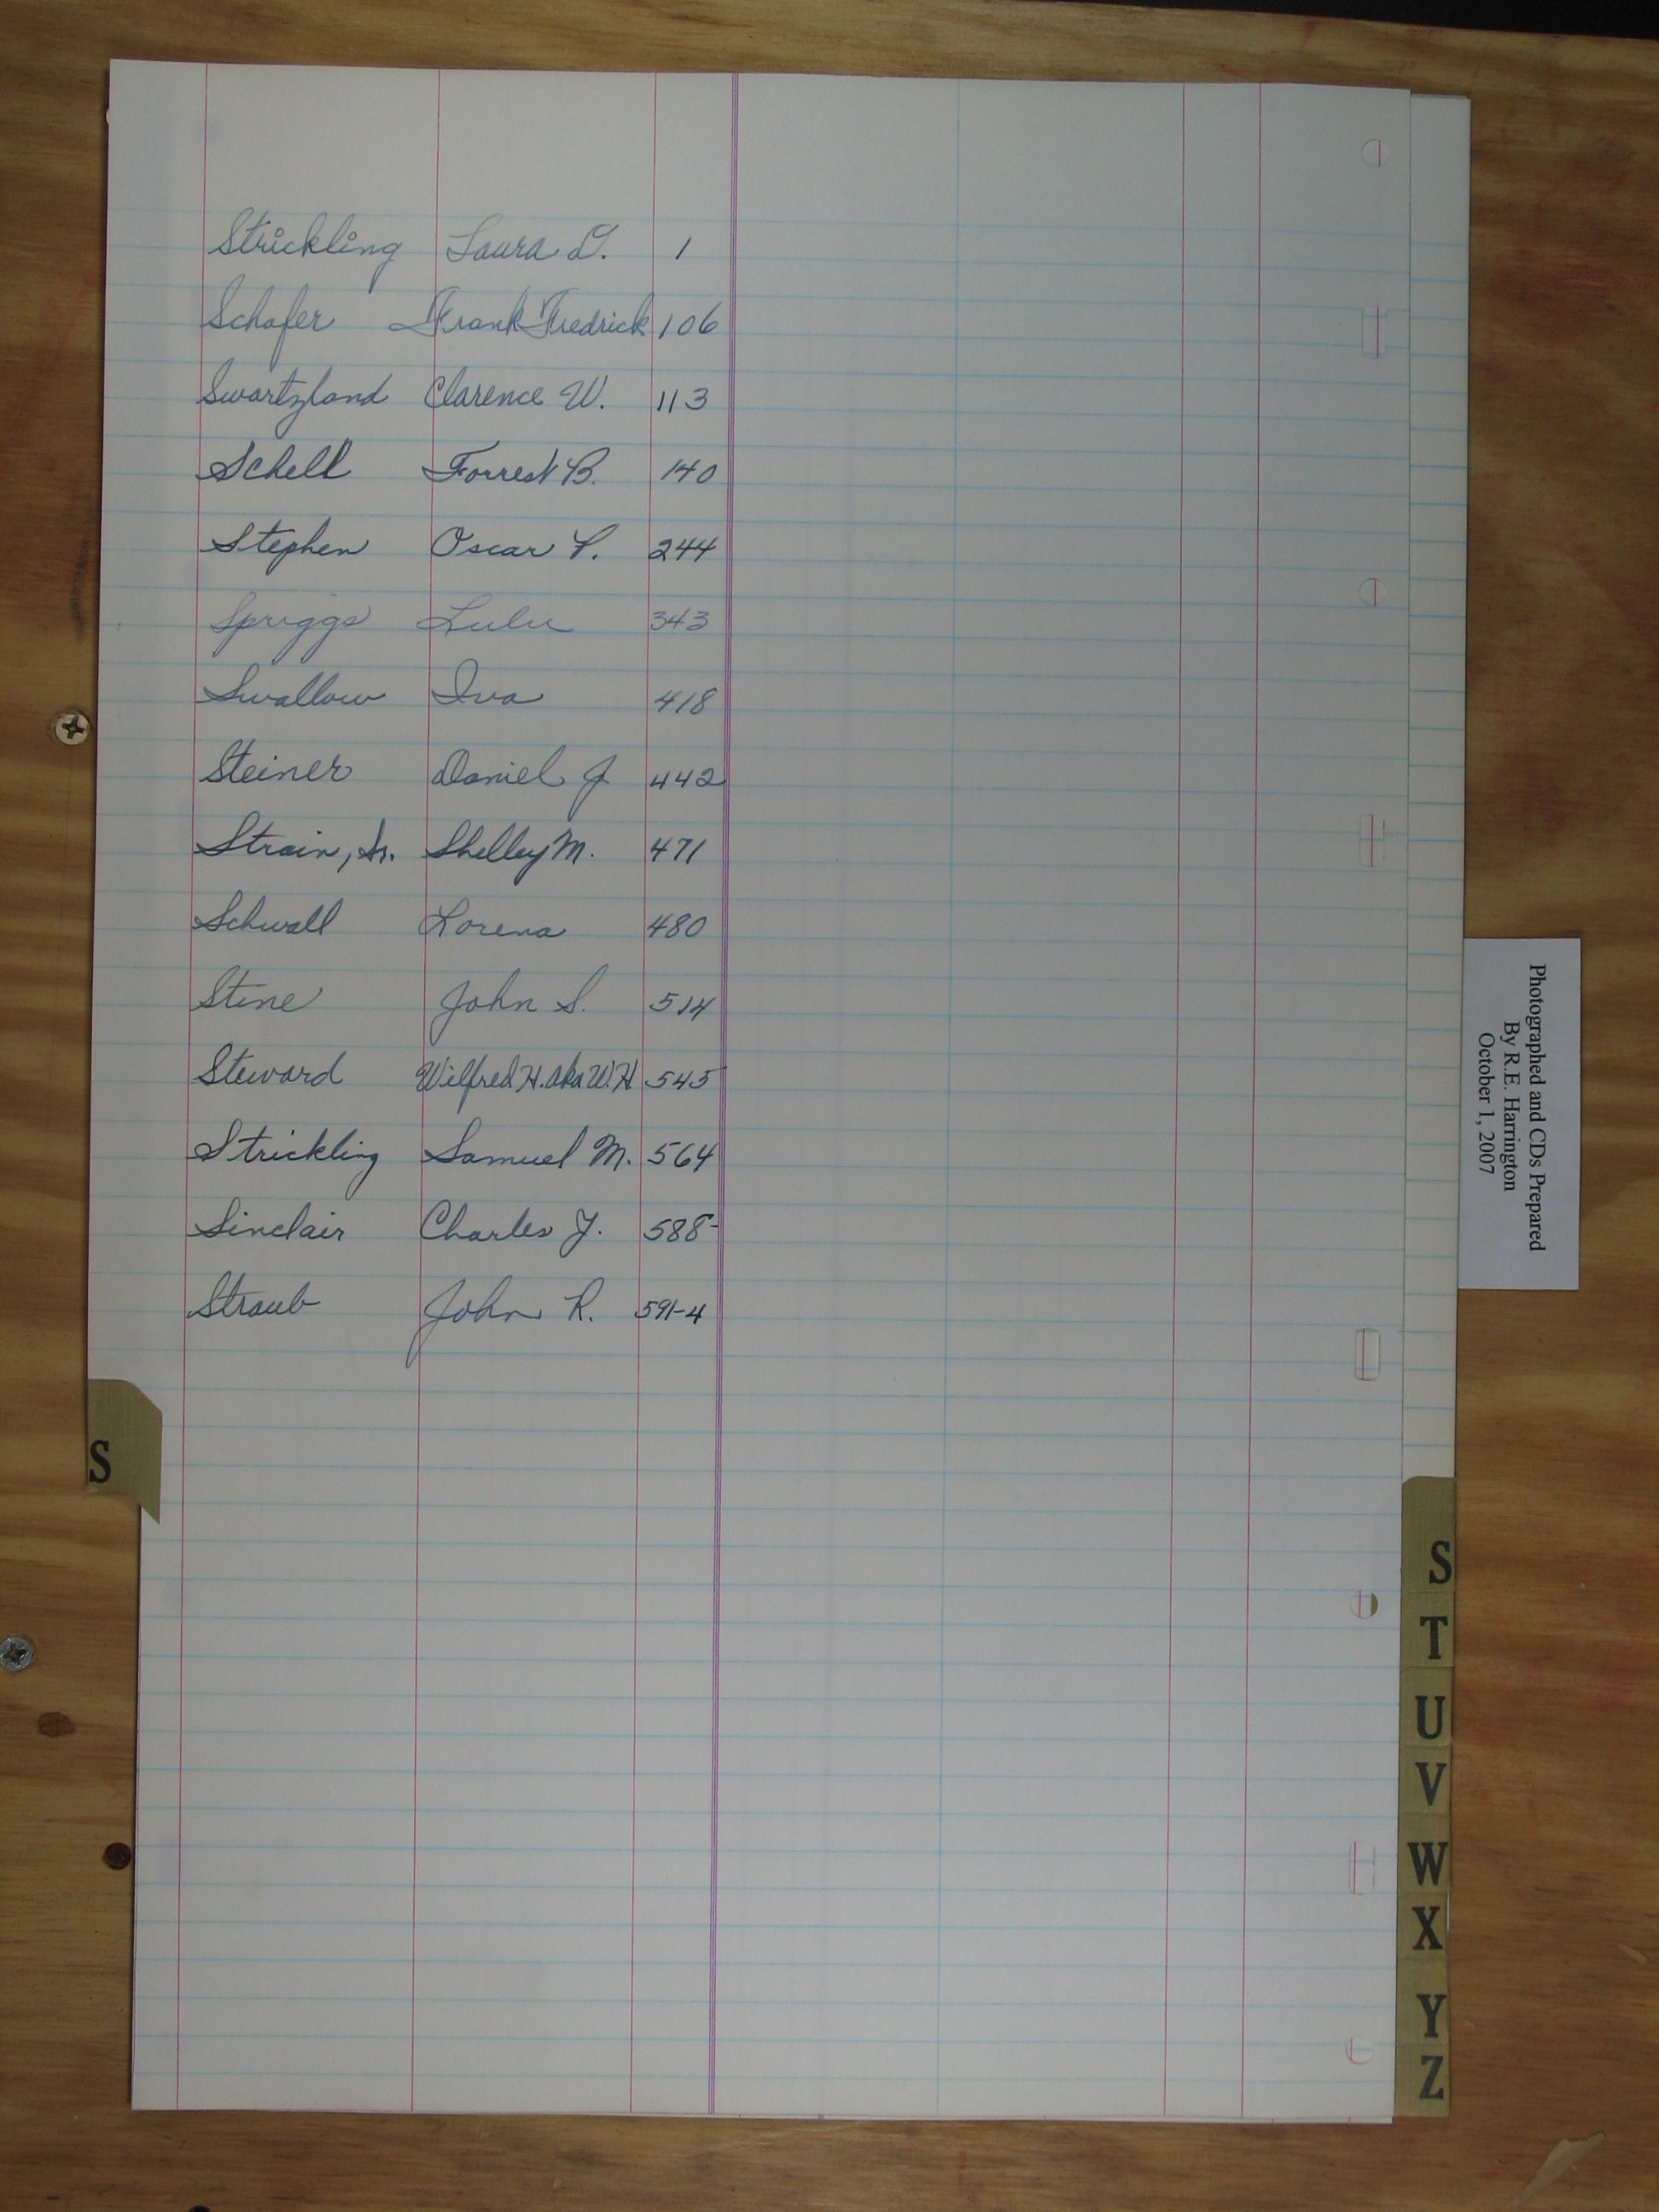 Strickling Laura D. 1
Schafer Frank Fredrick 106
Swartzland Clarence W. 113
Schell Forrest B. 140
Stephen Oscar P. 244
Spriggs Lulu 343
Swallow Iva 418
Steiner Daniel J 442
Strain, Sr. Shelley M. 471
Schwall Lorena 480
Stine John S. 514
Steward Wilfred H. aka W.H 545
Strickling Samuel M. 564
Sinclair Charles J. 588-
Straub John R. 591-4
S
Photographed and CDs Prepared
By R.E. Harrington
October 1, 2007
S
T
U
V
W
X
Y
Z